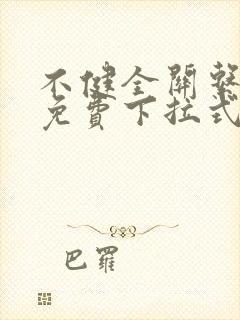 不健全關繫
免費下拉式
巴羅